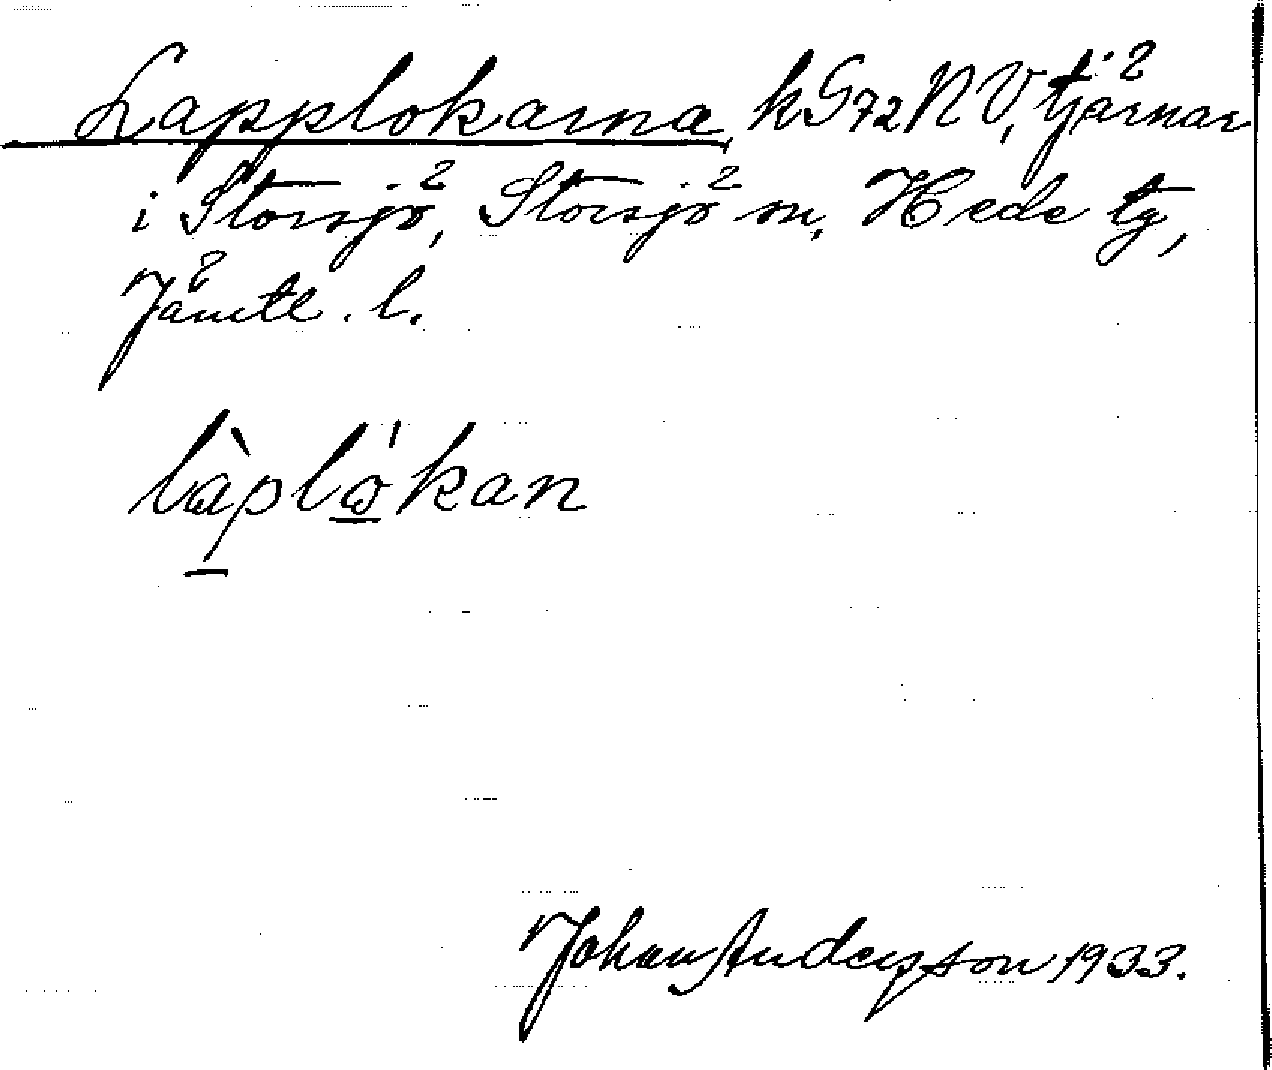 Lapplokarna, kG72NV, tjärnar
i Storsjö, Storsjö sn, Hede tg,
Jämtl. l.
làplǫ́kan
Johan Andersson 1933.